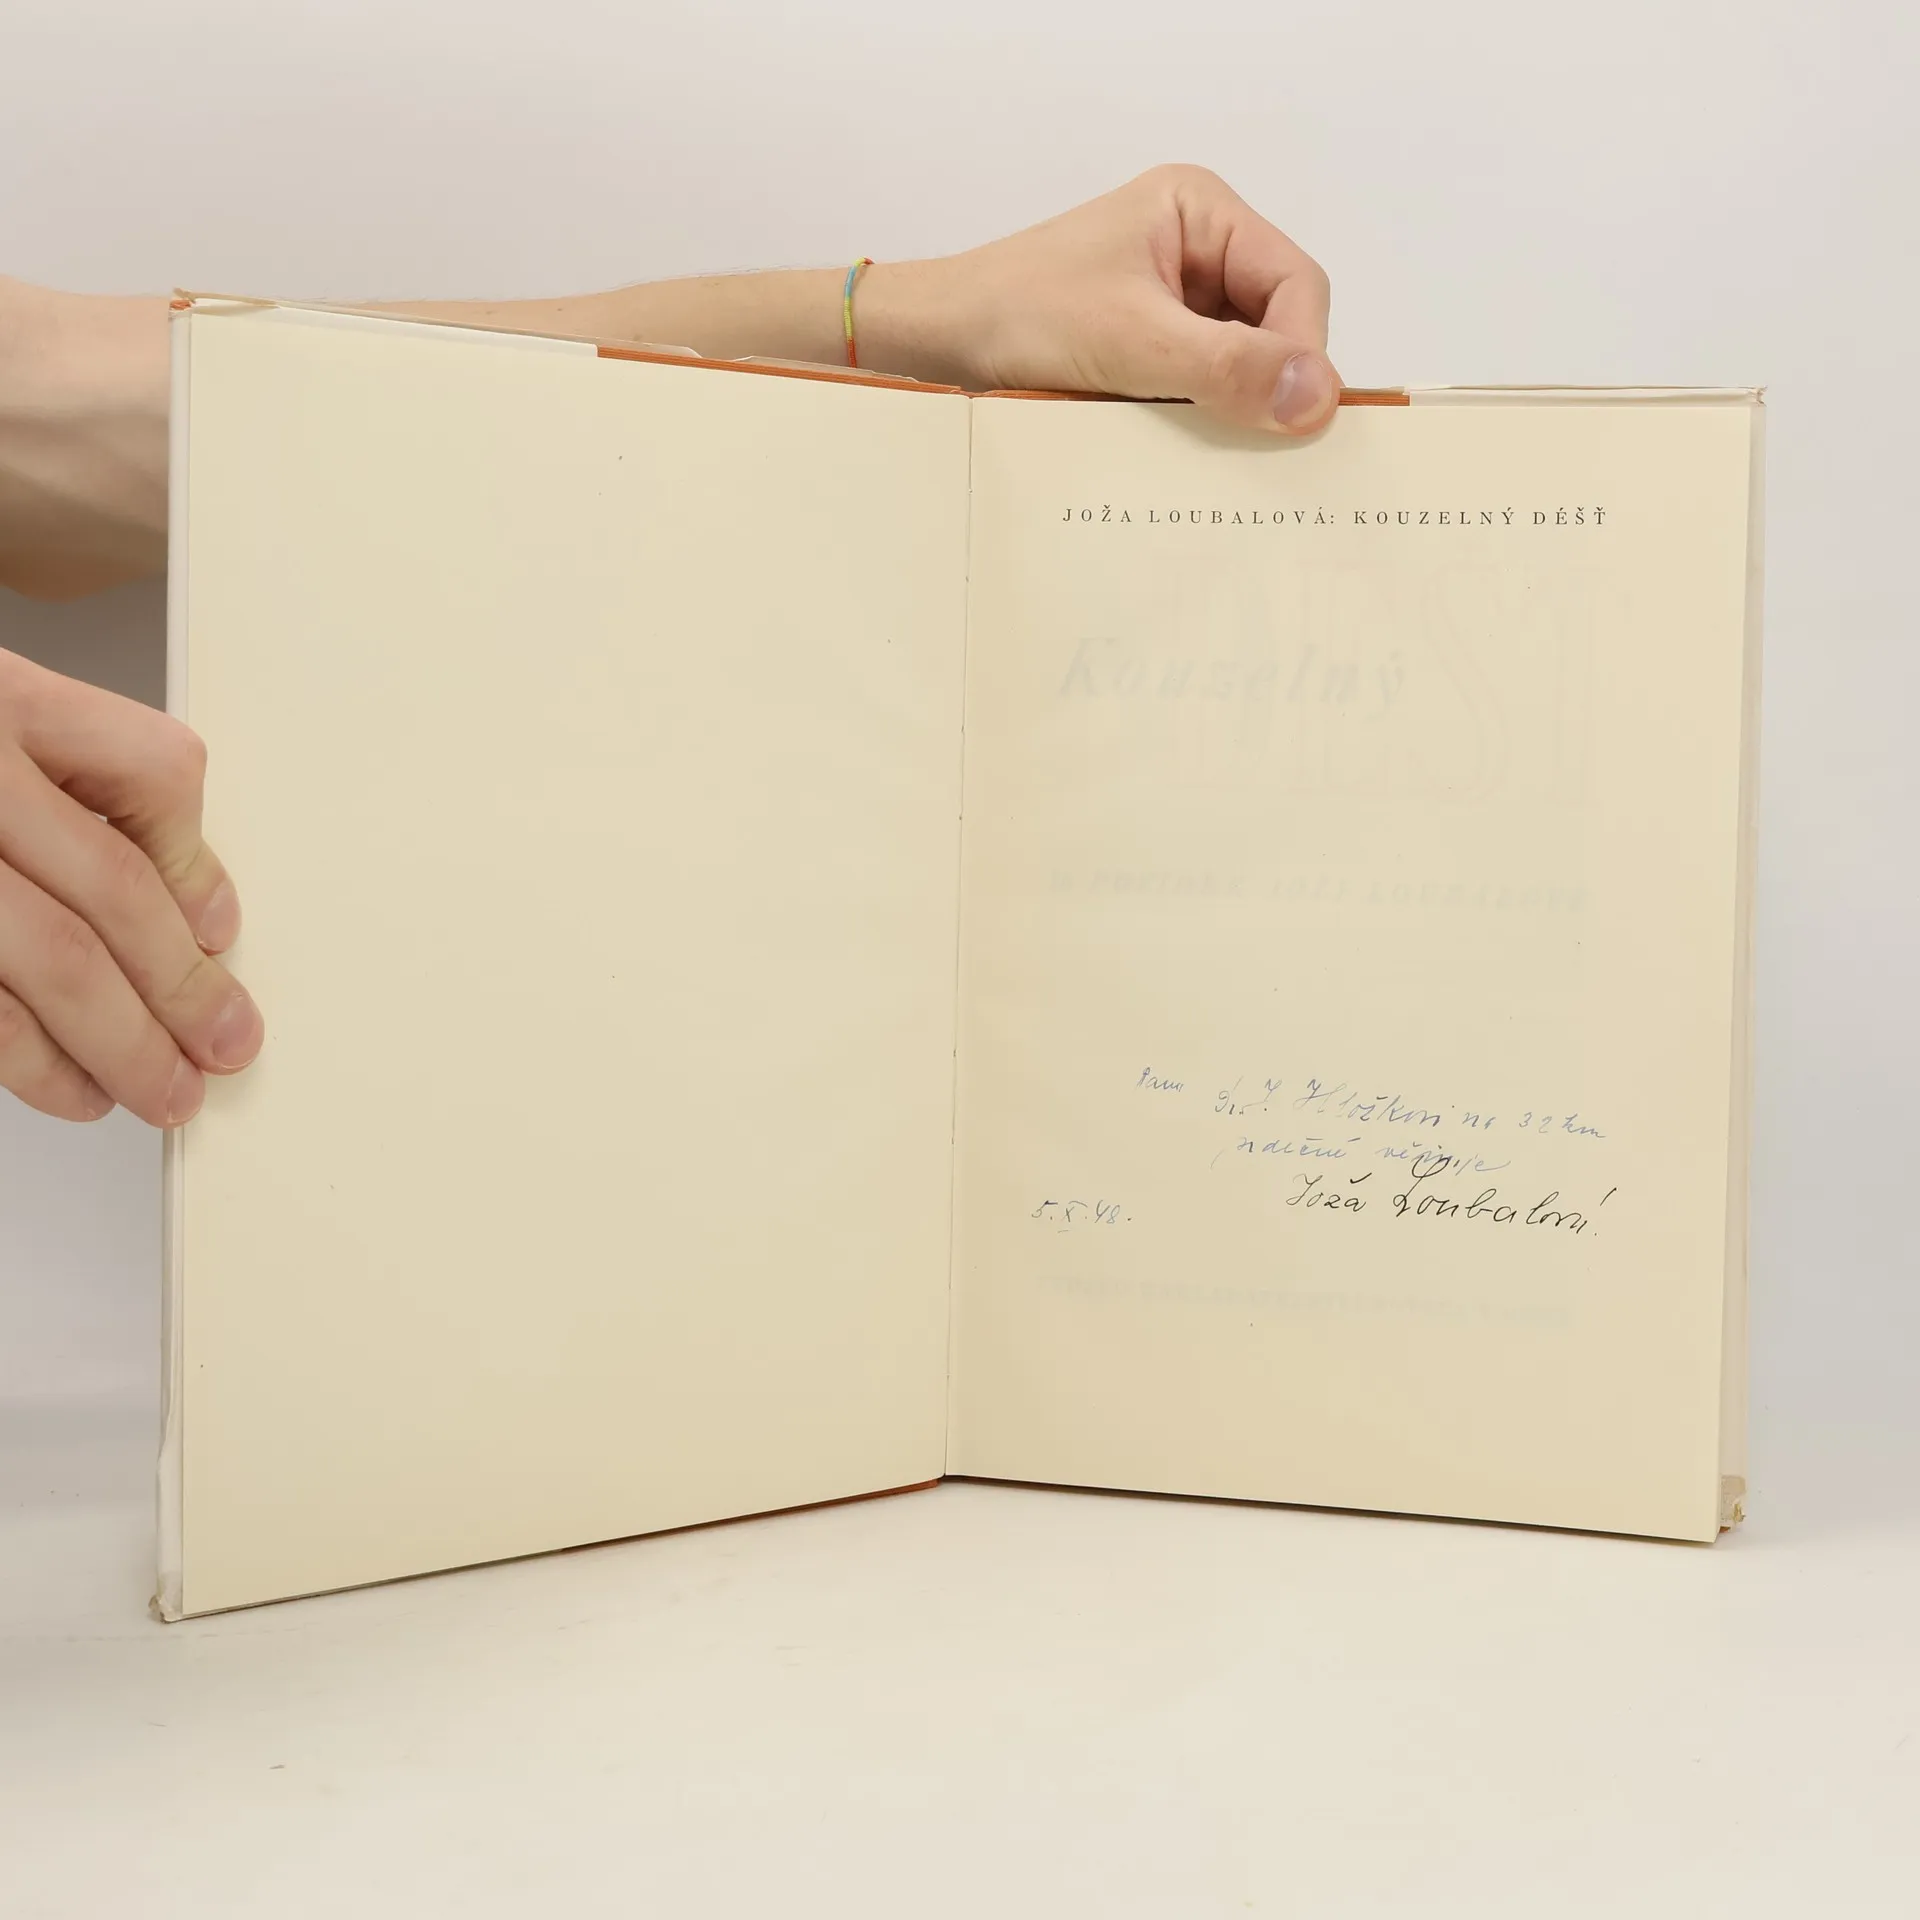 JOŽA LOUBALOVÁ: KOUZELNÝ DÉŠŤ
Kouzelný
DÉŠŤ
Panu Dr. J. Hložkovi na 32 km
srdečně věnuje
Joža Loubalová!
5.X.48.